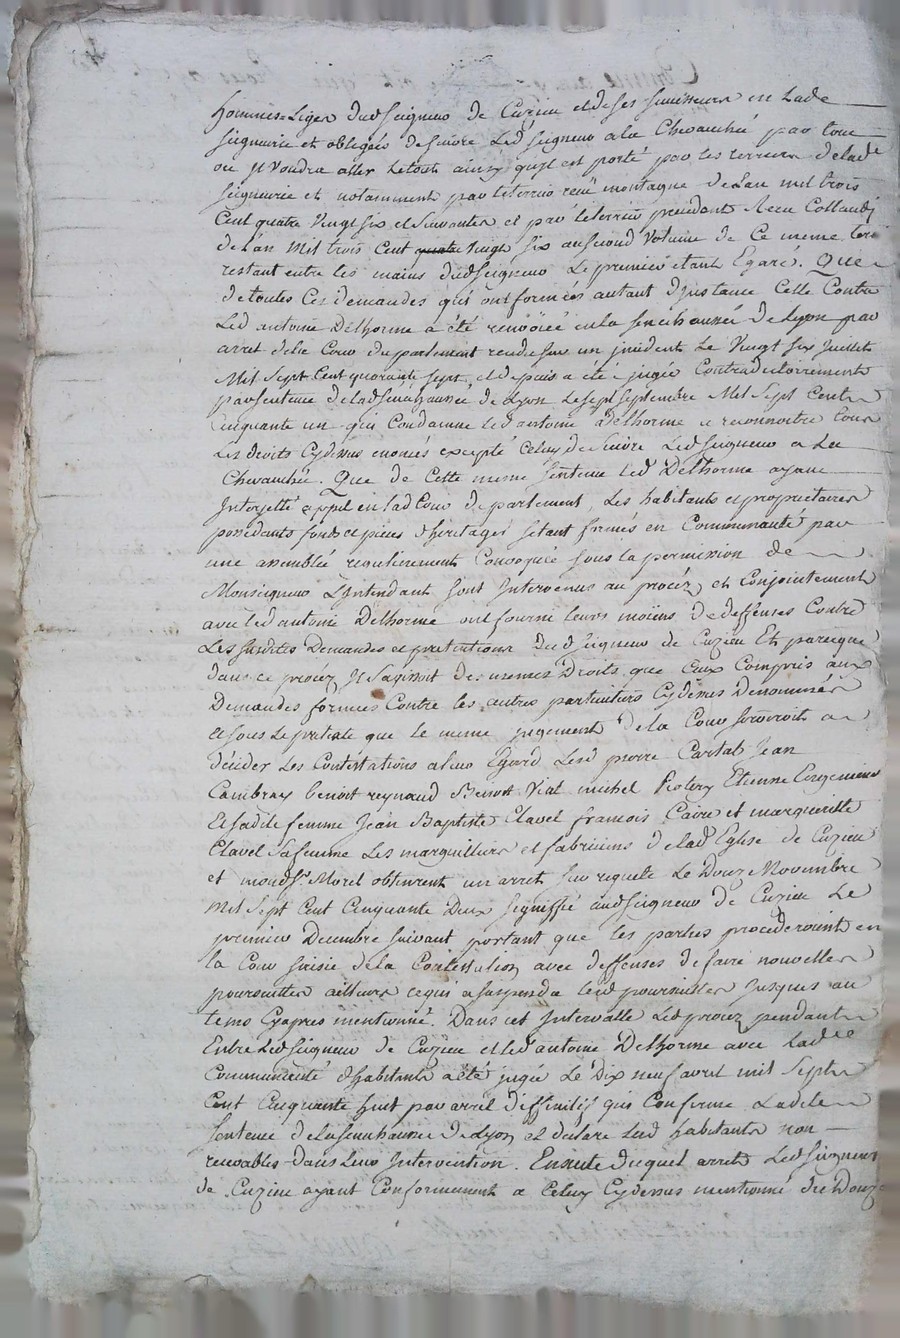 hommes-Liges dudSeigneur de Cuzieu et de ses successeurs en Lade
Seigneurie et obligés de suivre Led Seigneur a la Chevauchée par tout
ou Jl Voudra aller Letout ainsy qu'jl est porté par les terriers delade
seigneurie et notamment par leterrier reçu montagne Delan mil trois
Cent quatre Vingt six et Suivantes et par leterrier prendent Receu
delan Mil trois Cent Vingt six ausecond Volume de Ce meme terrier
restant entre les mains dudSeigneur Le premier étant Egaré. Que
detoutes Ces demandes qui ont formées autant d'jnstance Celle Contre
Led antoine Delhorme a été renvoiée enla senechaussée deLyon par
arret delad Cour duparlement rendu sur un jncident Le Vingt six Juillet
Mil Sept Cent quarante Sept, et depuis a été jugée Contradictoirement
par Sentence deladsenechaussée de Lyon Lesept Septembre Mil Sept Cent
Cinquante un qui Condamne led antoine Delhorme a reconnoitre tous
Les droits Cydessus enoncés excepté Celuy de Suivre Ledseigneur a La
Chevauchée. Que de Cette meme Sentence led Delhorme ayant
Jnterjetté appel en lad Cour de parlement, Les habitants et propriétaires
possedants fonds et pieces d'héritages setant formés en Communauté par
une assemblée regulierement Convoquée sous la permission de
Monseigneur L'Jntendant sont Jntervenus au procéz, et Conjointement
avec led antoine Delhorme ont fourni leurs moiens de deffenses Contre
Les susdites Demandes et pretentions Dudseigneur de Cuzieu Et parceque
dans ce procéz Jl Sagissoit des memes Droits que Ceux Compris aux
Demandes formées Contre les autres particuliers Cydessus Denommés
et sous Le pretexte que le meme jugement de la Cour serviroit a
décider Les Contestations aleur Egard Lesd pierre Cartal Jean
Cambray benoit reynaud Benoit Vial michel Etienne
Et sadite femme Jean Baptiste Clavel francois Caire et margueritte
Clavel Safemme Les marguilliers et fabriciens delad Eglise de Cuzieu
et mondsr. Morel obtinrent un arret sur requete Le Douze Novembre
Mil Sept Cent Cinquante Deux signiffié audSeigneur de Cuzieu Le
premier Decembre suivant portant que les parties procederoient en
la Cour saisie dela Contestation avec deffenses defaire nouvelles
poursuittes ailleurs cequi asuspendu lesd poursuittes Jusques au
tems Cyapres mentionné. Dans cet Jntervalle Led procez pendant
Entre Ledseigneur de Cuzieu et led antoine Delhorme avec Ladte
Communauté d'habitants a été jugé Le Dix neuf avril mil Sept
Cent Cinquante huit par arret diffinitif qui Confirme Ladite
Sentence de lasenechaussée deLyon et déclare Lesd habitants non
recevables dans Leur Jntervention. Ensuite duquel arret Ledseigneur
de Cuzieu ayant Conformement a Celuy Cydessus mentionné du Douze